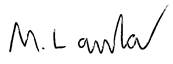 M. Lawlor